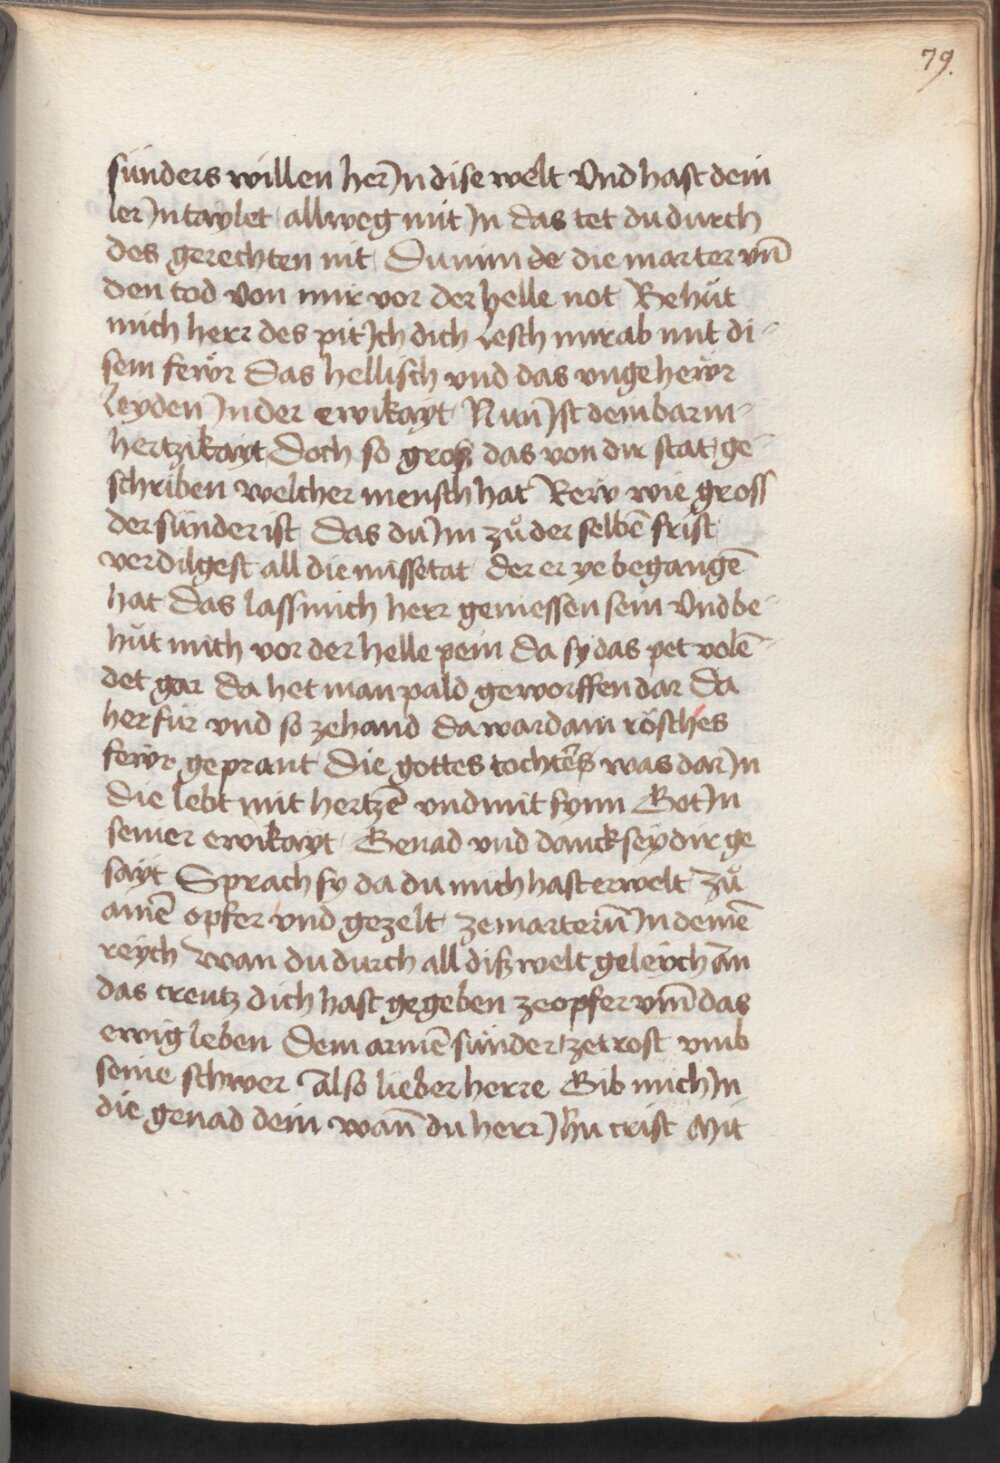 79.
sünders willen her Jn dise welt Vnd hast dein
ler Jn taylet allweg mit Jn das tet du durch
des gerechten nit Du nim de die marter vn̄
den tod von mir vor der helle not Behu̍t
mich herr des pit Jch dich Lesch mir ab mit di-
sem fewr Das hellisch vnd das vngehewr
Leyden Jn der ewikayt Nun Jst dein barm-
hertzikayt Doch so groß das von dir stat ge-
schriben welcher mensch hat Rew wie gross
der sünder ist Das du Jm zů der selbē frist
verdilgest all die missetat der er ye begangē
hat Das lass mich herr geniessen sein Vnd be-
hüt mich vor der helle pein Da sy das pet volē-
det gar Da het man pald geworffen dar Da
herfür vnd so zehand da ward ain rösches
fewr geprant Die gottes tochter was dar Jn
die lebt mit hertzē vnd mit synn Got Jn
seiner ewikayt Genad vnd danck sey dir ge
sayt Sprach sy da du mich hast erwelt Zů
ainē opfer vnd gezelt ze martern̄ Jn deinē
reych Wan du durch all diß welt geleych an
das creutz dich hast gegeben ze opfer vm̄ das
ewig leben Dem armē sünder ze trost vmb
seine schwer Also lieber herre Gib mich Jn
die genad dein wan̄ du herr Jhu crist Mit